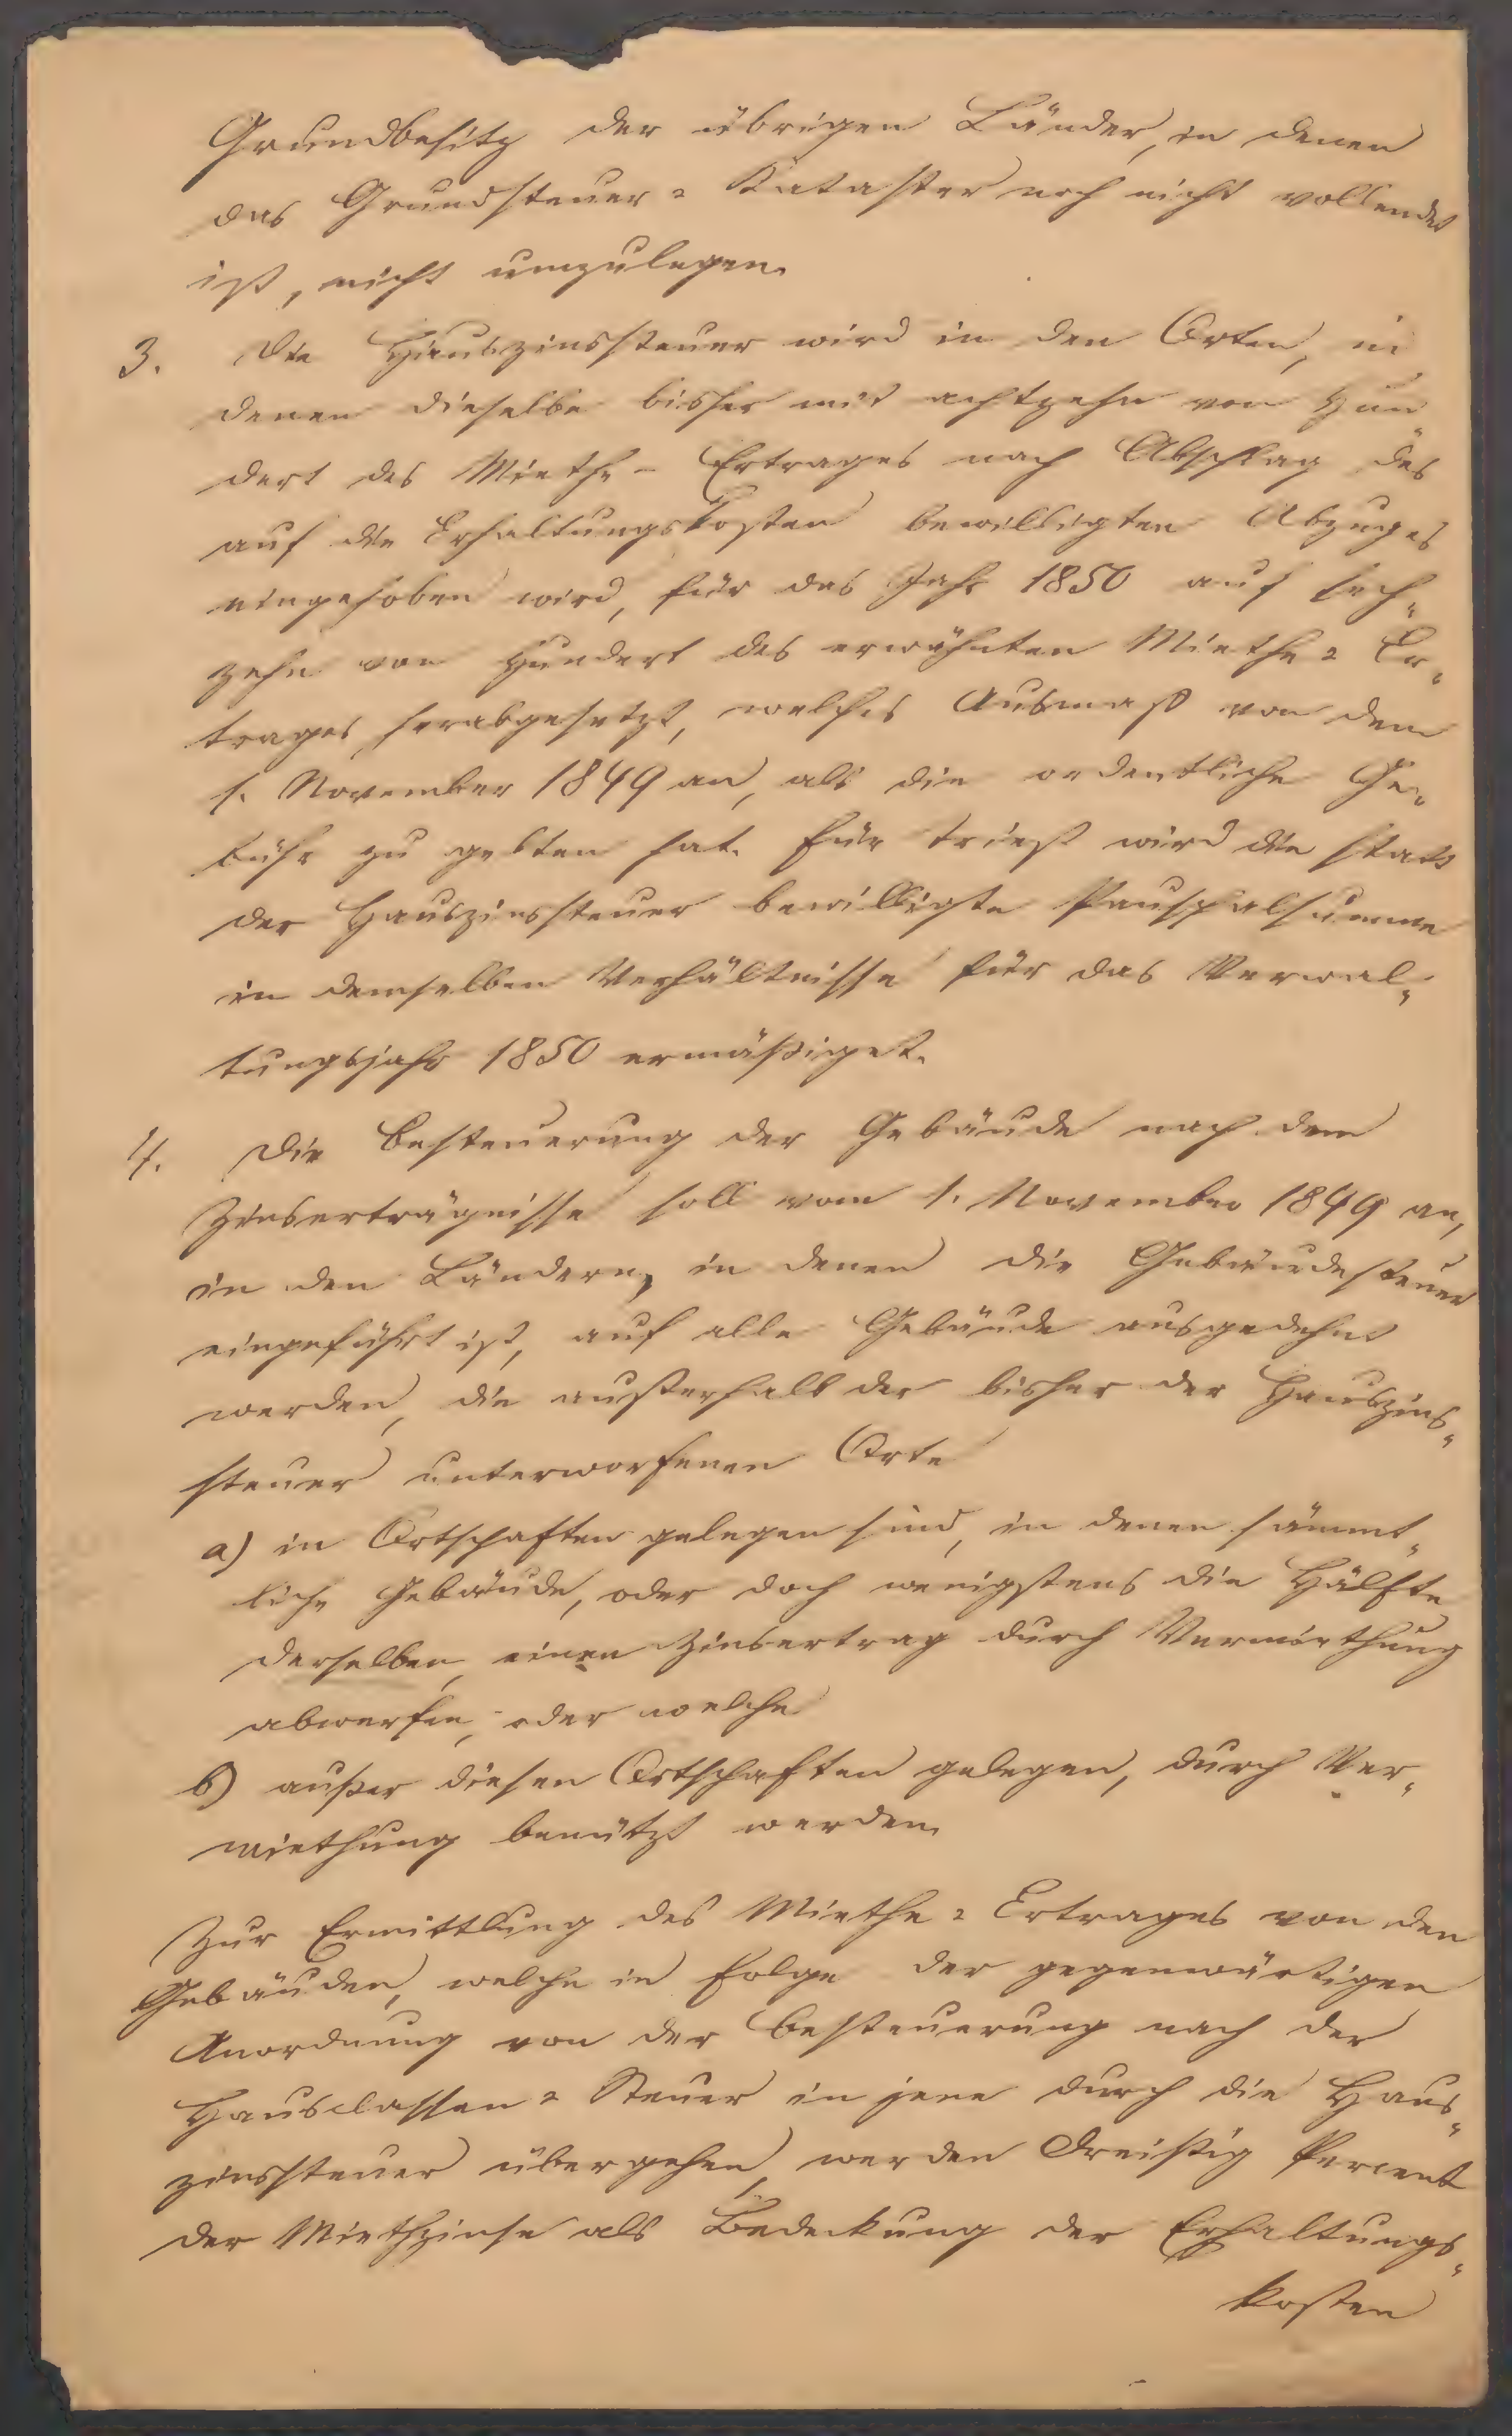 Grundbesitz der übrigen Länder, in denen
das Grundsteuer = Kataster noch nicht vollendet
ist, nicht umzulegen.
3. Die Hauszinssteuer wird in den Orten, in
denen dieselbe bisher mit achtzehn von Hun„
dert des Miethe - Ertrages nach Abschlag des
auf die Erhaltungskosten bewilligten Abzuges
eingehoben wird, für das Jahr 1850 auf sech„
zehn von Hundert des erwähnten Miethe = Er„
trages herabgesetzt, welches Ausmaß von dem
1. November 1849 an, als die ordentliche Ge„
bühr zu gelten hat. Für Triest wird die statt
der Hauszinssteuer bewilligte Pauschalsumme
in demselben Verhältnisse für das Verwal„
tungsjahr 1850 ermäßiget.
4. Die Besteuerung der Gebäude nach dem
Zinserträgnisse soll vom 1. November 1849 an,
in den Ländern, in denen die Gebäudesteuer
eingeführt ist, auf alle Gebäude ausgedehnt
werden, die außerhalb der bisher der Hauszins„
steuer unterworfenen Orte
a) in Ortschaften gelegen sind, in denen sämmt„
liche Gebäude, oder doch wenigstens die Hälfte
derselben, einen Zinsertrag durch Vermiethung
abwerfen, oder welche
b) außer diesen Ortschaften gelegen, durch Ver„
miethung benützt werden.
Zur Ermittlung des Miethe = Ertrages von den
Gebäuden, welche in Folge der gegenwärtigen
Anordnung von der Besteuerung nach der
Hausclassen = Steuer in jene durch die Haus„
zinssteuer übergehen, werden Dreißig Percent
der Miethzinse als Bedeckung der Erhaltungs„
kosten